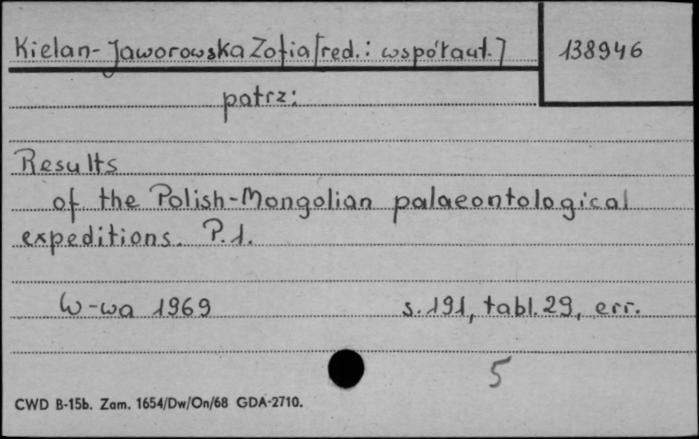 Kielan-Jaworowska Zofia [red.: współaut.]
138946
patrz:
Results
of the Polish-Mongolian palaeontological
expeditions. P.1.
W-wa 1969 s.191, tabl.29, err.
5
CWD B-15b. Zam. 1654/Dw/On/68 GDA-2710.